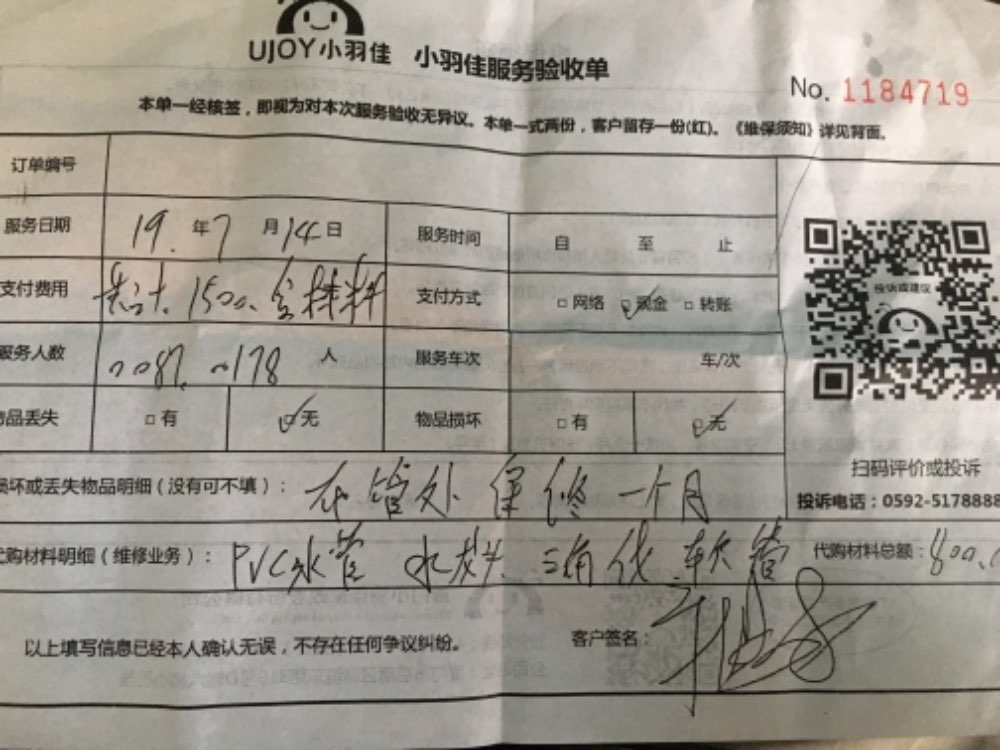 UJOY小羽佳 小羽佳服务验收单
No. 1184719
本单一经核签，即视为对本次服务验收无异议。本单一式两份，客户留存一份(红)。《维保须知》详见背面。
订单编号
服务日期 19. 年 7 月 14 日 服务时间 自 至 止
支付费用 共计 1500. 含材料 支付方式 □网络 ☑现金 □转账
服务人数 0087. 0178 人 服务车次 车/次
物品丢失 □有 ☑无 物品损坏 □有 ☑无
投诉或建议
扫码评价或投诉
投诉电话：0592-5178888
损坏或丢失物品明细（没有可不填）： 水管处 保修一个月
代购材料明细（维修业务）： PVC水管 水龙头 三角伐 软管 代购材料总额：800.0
以上填写信息已经本人确认无误，不存在任何争议纠纷。 客户签名：